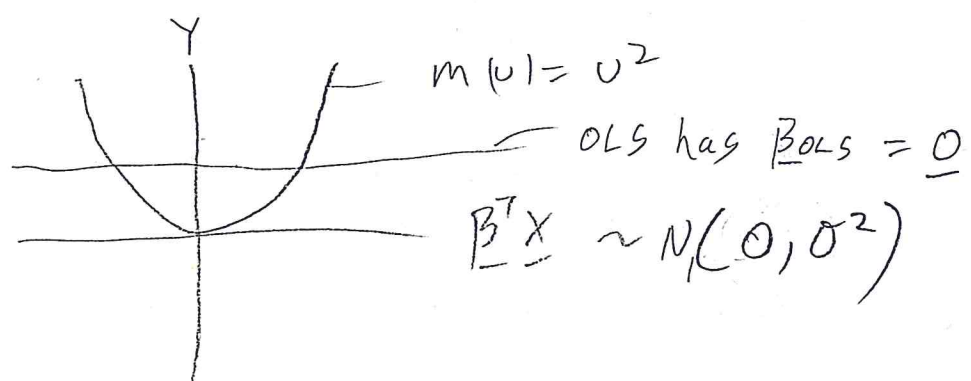 Y
m(u) = u²
OLS has β̲OLS = 0̲
β̲ᵀX̲ ~ N₁(0, σ²)